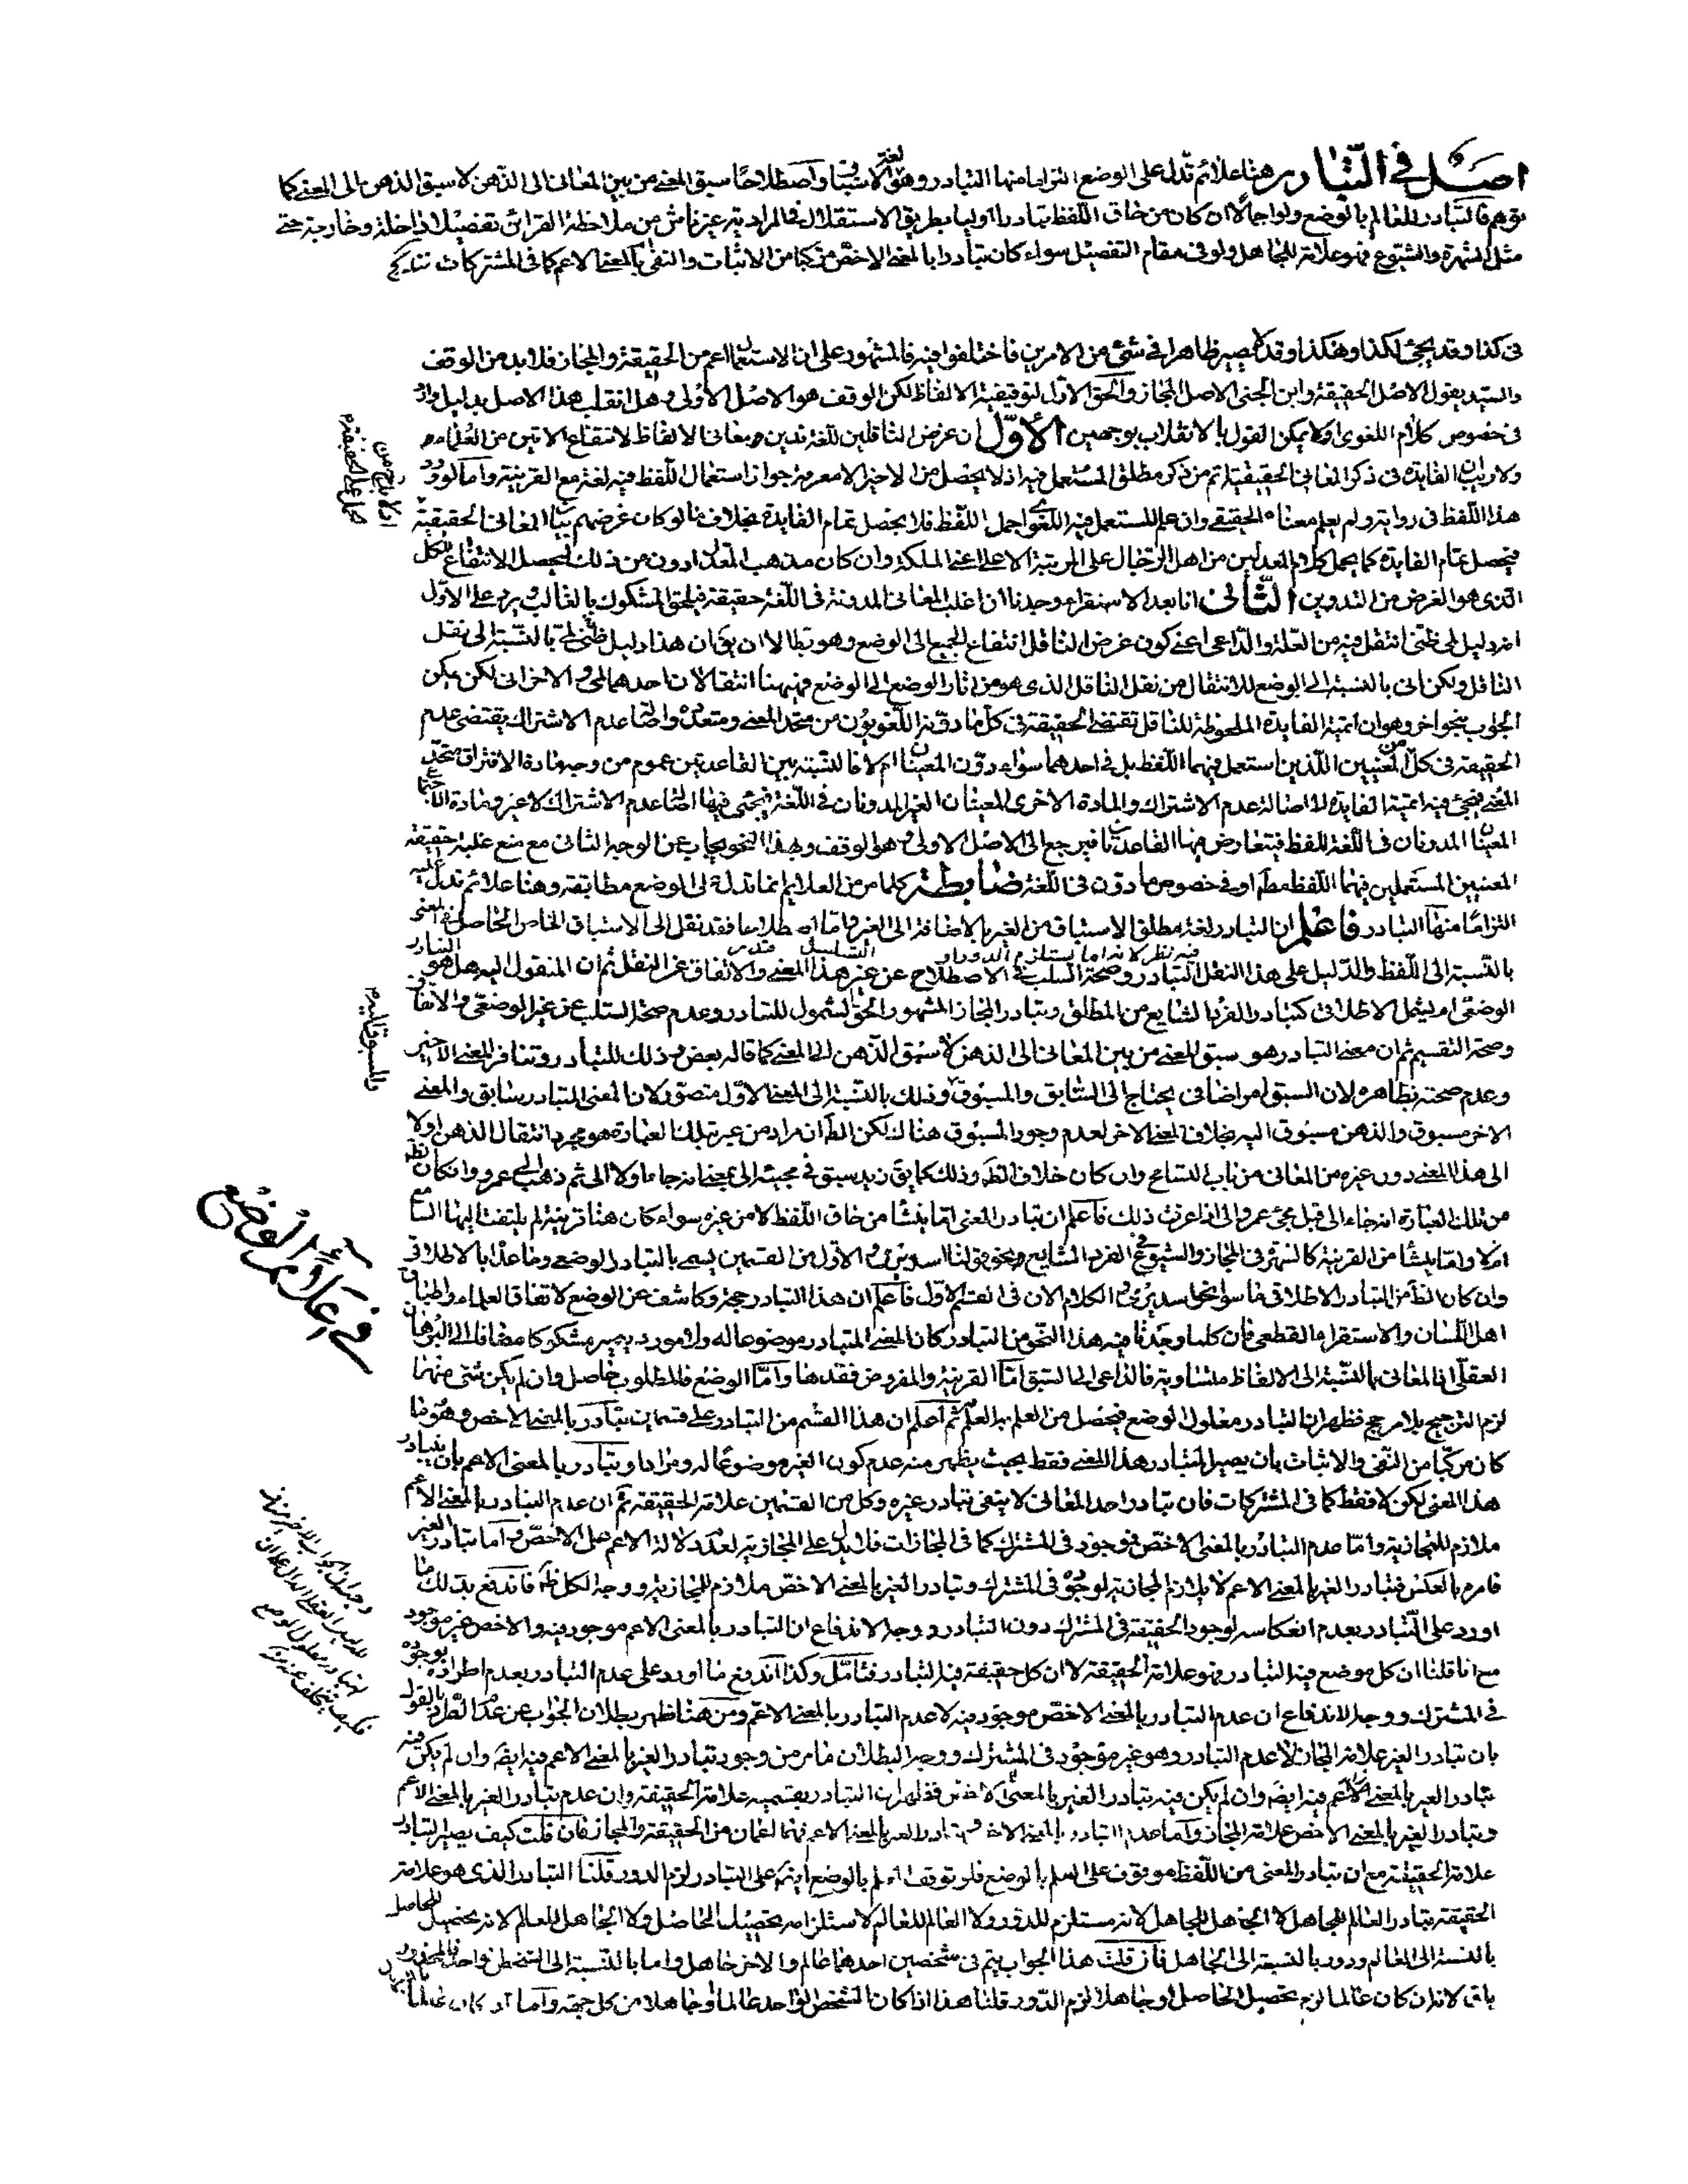 اصل في التبادر هنا علائم تدل على الوضع التزاما منها التبادر وهو لغة الاستباق واصطلاحا سبق المعنى من بين المعاني الى الذهن لا سبق الذهن الى المعنى كما
توهم فالتبادر للعالم بالوضع ولو اجمالا ان كان من حاق اللفظ تبادرا اوليا بطريق الاستقلال في المرادية غير ناش من ملاحظة القرائن تفصيلا داخلة وخارجة حتى
مثل الشهرة والشيوع فهو علامة للجاهل ولو في مقام التفصيل سواء كان تبادرا بالمعنى الاخص مركبا من الاثبات والنفي او بالمعنى الاعم كما في المشتركات
في كذا وقد يجئ لكذا وهكذا وقد لا يصير ظاهرا في شئ من الامرين فاختلفوا فيه فالمشهور على ان الاستعمال اعم من الحقيقة والمجاز فلا بد من الوقف
والسيد يقول الاصل الحقيقة وابن الجني الاصل المجاز والحق الاول لتوقيفية الالفاظ لكن الوقف هو الاصل الاولى وهل انقلب هذا الاصل بدليل وارد
في خصوص كلام اللغوي او لا يمكن القول بالانقلاب بوجهين الاول ان غرض الناقلين للغة تدوين معاني الالفاظ لانتفاع الاتين من العلماء
ولا ريب ان الفايدة في ذكر المعاني الحقيقية اتم من ذكر مطلق المستعمل فيه اذ لا يحصل من الاخير الا معرفة جواز استعمال اللفظ فيه لغة مع القرينة واما لو ورد
هذا اللفظ في رواية ولم يعلم معناه الحقيقي وان علم المستعمل فيه اللغوي اجمل اللفظ فلا يحصل تمام الفايدة بخلاف ما لو كان غرضهم بيان المعاني الحقيقية
فيحصل تمام الفايدة كما يحمل كلام المعدلين من اهل الرجال على المرتبة الاعلى اعني الملكة وان كان مذهب المعدل ادون من ذلك ليحصل الانتفاع للكل
الذي هو الغرض من التدوين الثاني انا بعد الاستقراء وجدنا ان اغلب المعاني المدونة في اللغة حقيقة فيلحق المشكوك بالغالب يرد على الاول
انه دليل لمي ظني انتقل فيه من العلة والداعي اعني كون غرض الناقل انتفاع الجميع الى الوضع وهو بط الا ان يق ان هذا دليل ظني لمي بالنسبة الى نقل
الناقل ولكن اني بالنسبة الى الوضع للانتقال من نقل الناقل الذي هو من اثار الوضع الى الوضع فههنا انتقالان احدهما لمي والاخر اني لكن يمكن
الجواب بنحو اخر وهو ان اتمية الفايدة الملحوظة للناقل تقتضي الحقيقة في كل ما دونه اللغويون من متحد المعنى ومتعدده واصالة عدم الاشتراك يقتضي عدم
الحقيقة في كل من المعنيين اللذين استعمل فيهما اللفظ بل في احدهما سواء دون المعنيان ام لا فالنسبة بين القاعدتين عموم من وجه مادة الافتراق متحد
المعنى فيجئ فيه اتمية الفايدة لا اصالة عدم الاشتراك والمادة الاخرى المعنيان الغير المدونان في اللغة فيجئ فيها اصالة عدم الاشتراك لا غير ومادة الاجتماع
المعنيان المدونان في اللغة للفظ فيتعارض فيها القاعدتان فيرجع الى الاصل الاولى وهو الوقف وبهذا النحو يجاب عن الوجه الثاني مع منع غلبة حقيقة
المعنيين المستعملين فيهما اللفظ مطم او في خصوص ما دون في اللغة ضابطة كلما مر من العلايم انما تدل على الوضع مطابقة وهنا علائم تدل عليه
التزاما منها التبادر فاعلم ان التبادر لغة مطلق الاستباق من الغير بالاضافة الى الغير واما اصطلاحا فقد نقل الى الاستباق الخاص الحاصل في المعنى
فيه نظر لانه اما يستلزم الدور او التسلسل فتدبر
بالنسبة الى اللفظ والدليل على هذا النقل التبادر وصحة السلب في الاصطلاح عن غير هذا المعنى والاتفاق على النقل ثم ان المنقول اليه هل هو التبادر
الوضعي ام يشمل الاطلاقي كتبادر الفرد الشايع من المطلق وتبادر المجاز المشهور الحق الشمول للتبادر وعدم صحة السلب عن غير الوضعي والاتفاق
وصحة التقسيم ثم ان معنى التبادر هو سبق المعنى من بين المعاني الى الذهن لا سبق الذهن الى المعنى كما قاله بعض وذلك للتبادر وتنافر المعنى الاخير
وعدم صحته بظاهره لان السبق امر اضافي يحتاج الى السابق والمسبوق وذلك بالنسبة الى المعنى الاول متصور لان المعنى المتبادر سابق والمعنى
الاخر مسبوق والذهن مسبوق اليه بخلاف المعنى الاخر لعدم وجود المسبوق هناك لكن الظ ان مراد من عبر بتلك العبارة هو مجرد انتقال الذهن اولا
الى هذا المعنى دون غيره من المعاني من باب التسامح وان كان خلاف الظ وذلك كما يق زيد سبق في مجيئه الى بمعنى انه جاء اولا الى ثم ذهب الى عمرو وان كان الظ
من تلك العبارة انه جاء الى قبل مجئ عمرو الى اذا عرفت ذلك فاعلم ان تبادر المعنى اما ينشأ من حاق اللفظ لا من غيره سواء كان هنا قرينة لم يلتفت اليها السامع
ام لا واما ينشأ من القرينة كالشهرة في المجاز والشيوع في الفرد الشايع ونحو قولنا اسد يرمي والاول من القسمين يسمى بالتبادر الوضعي وما عداه بالاطلاقي
وان كان الظ من التبادر الاطلاقي ما سوى نحو اسد يرمي والكلام الان في القسم الاول فاعلم ان هذا التبادر حجة وكاشف عن الوضع لاتفاق العلماء واطباق
اهل اللسان والاستقراء القطعي فان كلما وجدنا فيه هذا النحو من التبادر كان المعنى المتبادر موضوعا له ولا مورد يصير مشكوكا مضافا الى البرهان
العقلي ان المعاني بالنسبة الى الالفاظ متساوية فالداعي الى السبق اما القرينة والمفروض فقدها واما الوضع فالمطلوب حاصل وان لم يكن شئ منهما
لزم الترجيح بلا مرجح فظهر ان التبادر معلول الوضع فيحصل من العلم به العلم ثم اعلم ان هذا القسم من التبادر على قسمين تبادر بالمعنى الاخص وهو ما
كان مركبا من النفي والاثبات بان يصير المتبادر هذا المعنى فقط بحيث يظهر منه عدم كون الغير موضوعا له ومرادا وتبادر بالمعنى الاعم بان يتبادر
هذا المعنى لكن لا فقط كما في المشتركات فان تبادر احد المعاني لا ينفي تبادر غيره وكل من القسمين علامة الحقيقة ثم ان عدم التبادر بالمعنى الاعم
ملازم للمجازية واما عدم التبادر بالمعنى الاخص فموجود في المشترك كما في المجازات فلا يدل على المجازية لعدم دلالة الاعم على الاخص واما تبادر الغير
فامره بالعكس فتبادر الغير بالمعنى الاعم لا يلازم المجازية لوجوده في المشترك وتبادر الغير بالمعنى الاخص ملازم للمجازية ووجه الكل ظ فاندفع بذلك ما
اورد على التبادر بعدم انعكاسه لوجود الحقيقة في المشترك دون التبادر ووجه الاندفاع ان التبادر بالمعنى الاعم موجود فيه والاخص غير موجود
مع انا قلنا ان كل موضع فيه التبادر فهو علامة الحقيقة لا ان كل حقيقة فيه التبادر فتامل وكذا اندفع ما اورد على عدم التبادر بعدم اطراده بوجوده
في المشترك ووجه الاندفاع ان عدم التبادر بالمعنى الاخص موجود فيه لا عدم التبادر بالمعنى الاعم ومن هنا ظهر بطلان الجواب عن عدم الطرد بالقول
بان تبادر الغير علامة المجاز لا عدم التبادر وهو غير موجود في المشترك ووجه البطلان ما مر من وجود تبادر الغير بالمعنى الاعم فيه ايض وان لم يكن فيه
تبادر الغير بالمعنى الاعم فيه ايض وان لم يكن فيه تبادر الغير بالمعنى الاخص فظهر ان التبادر بقسميه علامة الحقيقة وان عدم تبادر الغير بالمعنى الاعم
وتبادر الغير بالمعنى الاخص علامة المجاز واما عدم التبادر بالمعنى الاخص وتبادر الغير بالمعنى الاعم فهما اعمان من الحقيقة والمجاز فان قلت كيف يصير التبادر
علامة الحقيقة مع ان تبادر المعنى من اللفظ موقوف على العلم بالوضع فلو توقف العلم بالوضع ايض على التبادر لزم الدور قلنا التبادر الذي هو علامة
الحقيقة تبادر العالم للجاهل لا الجاهل للجاهل لانه مستلزم للدور ولا العالم للعالم لاستلزامه تحصيل الحاصل ولا الجاهل للعالم لانه تحصيل للحاصل
بالنسبة الى العالم ودور بالنسبة الى الجاهل فان قلت هذا الجواب يتم في شخصين احدهما عالم والاخر جاهل واما بالنسبة الى الشخص الواحد فالمحذور
باق لانه ان كان عالما لزم تحصيل الحاصل او جاهلا لزم الدور قلنا هذا اذا كان الشخص الواحد عالما او جاهلا من كل جهة واما اذا كان عالما
في علائم الوضع
والمسبوق اليه م